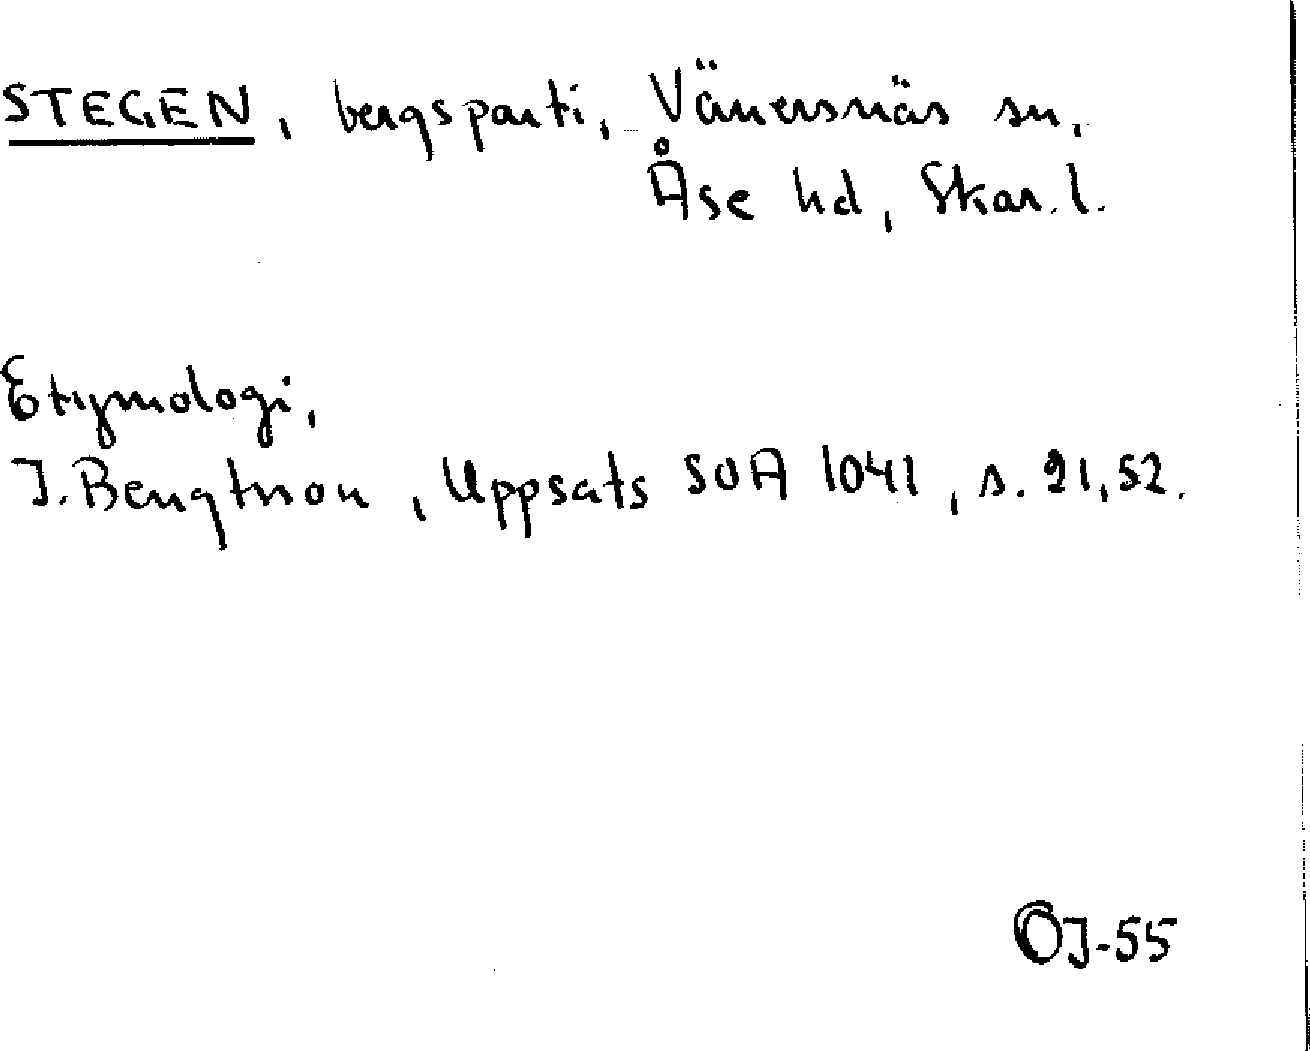 STEGEN, bergsparti, Vänersnäs sn,
Åse hd, Skar. l.
Etymologi,
J. Bengtsson, Uppsats SOA 1041, s. 21, 52.
OJ-55